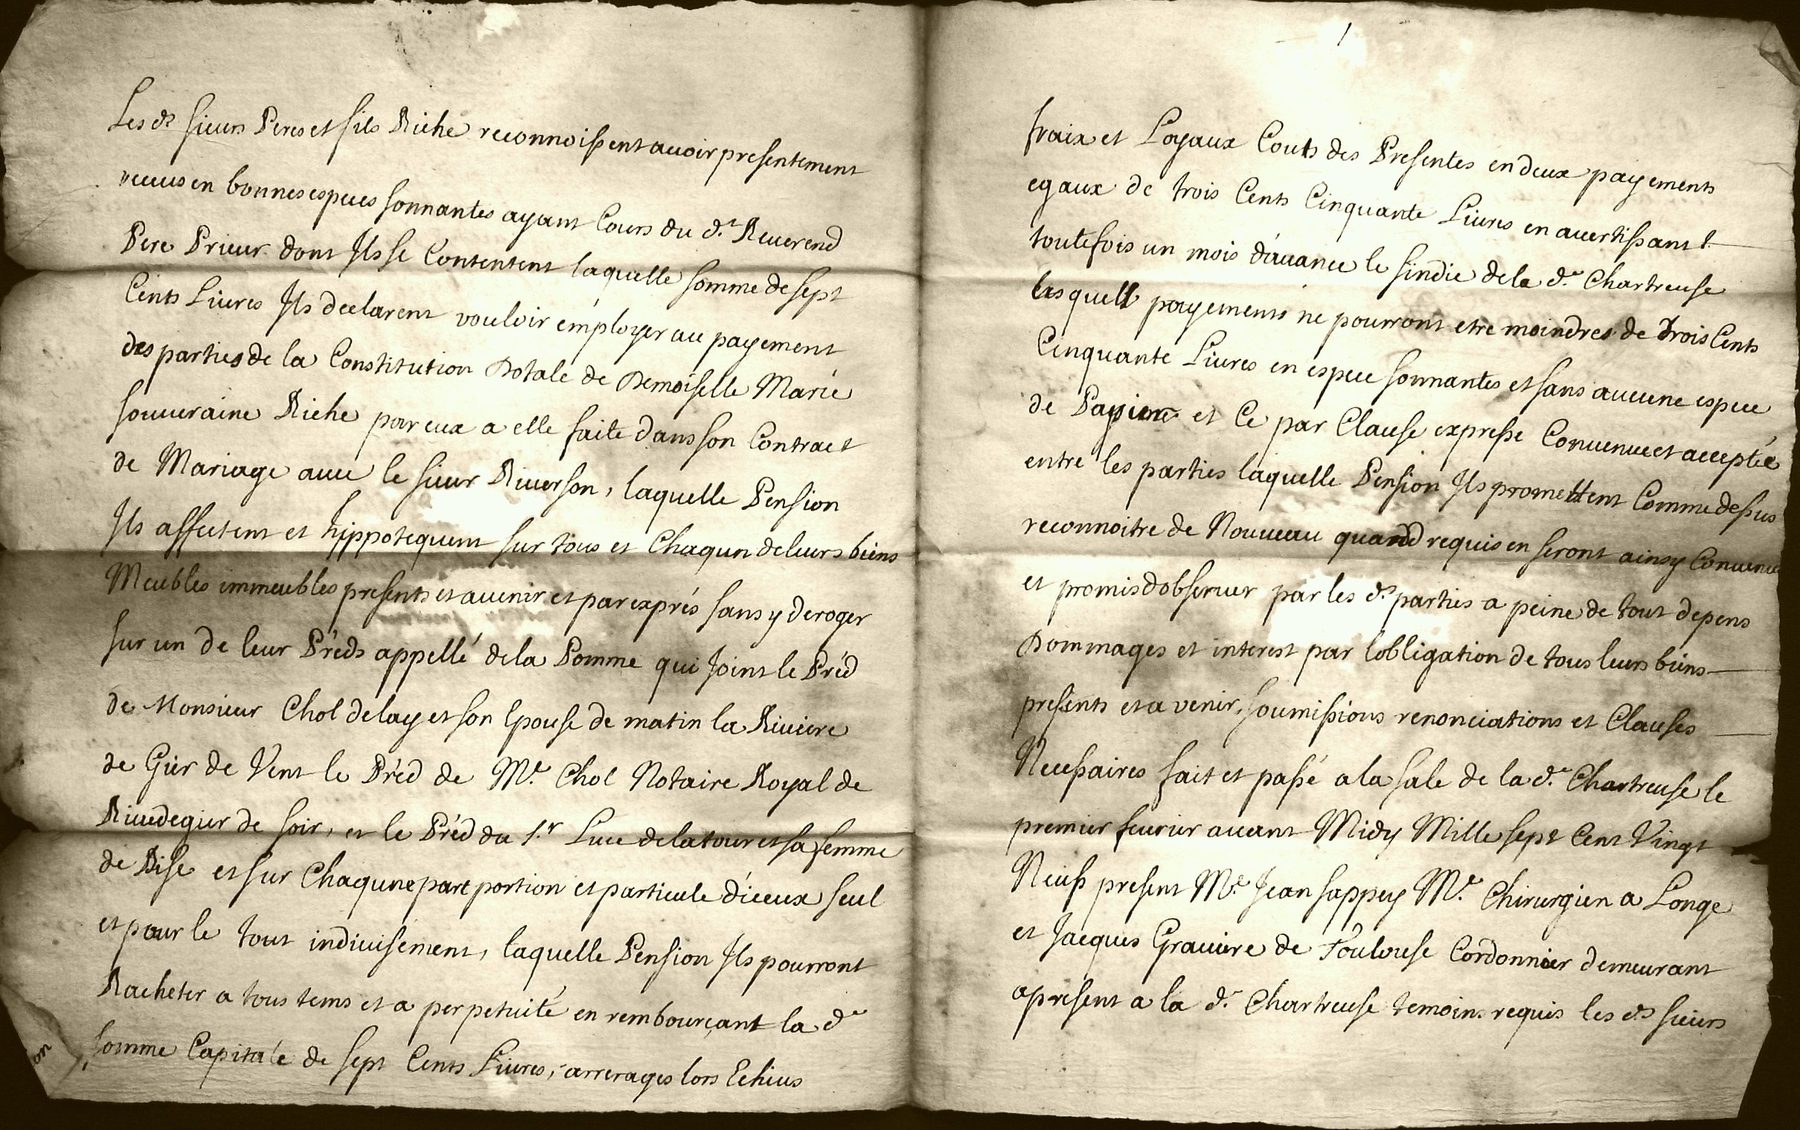 Les ds sieurs Peres et fils Riche reconnoissent avoir presentement
receus en bonnes especes sonnantes ayant Cours du d.t Reverend
Pere Prieur dont Ils se Contentent laquelle somme de sept
Cents Livres Ils declarent vouloir émployer au payement
des parties de la Constitution Dotale de Demoiselle Marie
souveraine Riche par eux a elle faite dans son Contract
de Mariage avec le sieur Riverson, laquelle Pension
Ils affectent et hippotequent sur tous et Chaqun de leurs biens
Meubles immeubles presents et avenir et par exprés sans y deroger
sur un de leur Préds appellé de la Pomme qui Joint le Préd
de Monsieur Chol delay et son Epouse de matin la Riviere
de Gier de Vent le Préd de M.e Chol Notaire Royal de
Rivedegier de soir, et le Préd du s.r Luce delatour et sa femme
de Bise et sur Chaqune part portion et particule d'iceux seul
et pour le tout indivisement, laquelle Pension Ils pourront
Racheter a tous tems et a perpetuité en rembourçant la d.e
somme Capitale de sept Cents Livres, arrerages lors Echeus
on
1
fraix et Loyaux Couts des Presentes en deux payements
egaux de trois Cents Cinquante Livres en avertissant
toutefois un mois d'avance le sindic de la d.e Chartreuse
lesquells payements ne pourront etre moindres de Trois Cents
Cinquante Livres en espece sonnantes et sans aucune espece
de Papiers et Ce par Clause expresse Convenue et acceptée
entre les parties laquelle Pension Ils promettent Comme dessus
reconnoitre de Nouveau quand requis en seront ainsy Convenu
et promis d'observer par les ds parties a peine de tout depens
Dommages et interest par lobligation de tous leurs biens
presents et a venir, soumissions renonciations et Clauses
Necessaires fait et passé a la sale de la d.e Chartreuse le
premier fevrier avant Midy Mille sept Cent Vingt
Neufs present M.e Jean sappey M.e Chirurgien a Longe
et Jacques Graviere de Toulouse Cordonnier demeurant
apresent a la d.e Chartreuse temoins requis les ds sieurs